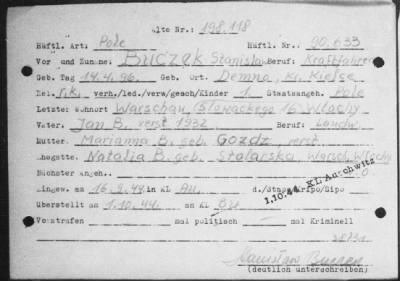 alte Nr.: 198.118
Häftl. Art: Pole Häftl. Nr.: 90.633
Vor und Zuname: Buczek Stanislaw Beruf: Kraftfahrer
Geb. Tag 14.4.96. Geb. Ort. Demno, Kr. Kielse
Rel. r.k. verh./led./verw/gesch/Kinder 1 Staatsangeh. Pole
Letzte: Wohnort Warschau, Slowackego 16 Wlochy
Vater: Jan B. verst 1932 Beruf: Landw.
Mutter: Marianna B. geb. Gozdz, verst.
Ehegatte: Natalia B. geb. Stolarska, Warsch. Wlochy
Nächster angeh..
Eingew. am 16.9.44 in KL Au. d./Stapo/Kripo/Sipo
1.10.44 KL Auschwitz
Überstellt am 1.10.44. an KL Bu
Vorstrafen mal politisch — mal Kriminell
Stanislaw Buczek
(deutlich unterschreiben)